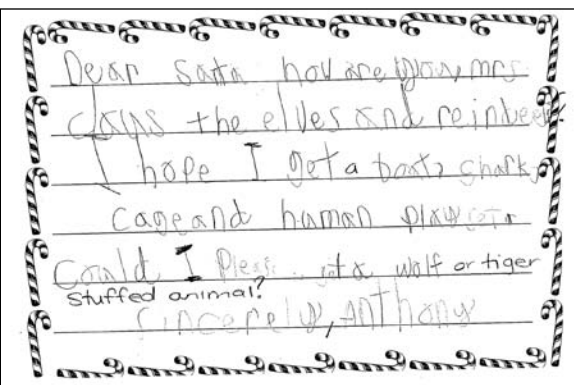 Dear Santa how are you, mrs
claus the elves and reindeer.
I hope I get a boat, shark,
cage and human playset.
Could I Please get a wolf or tiger
stuffed animal?
Sincerely, Anthony